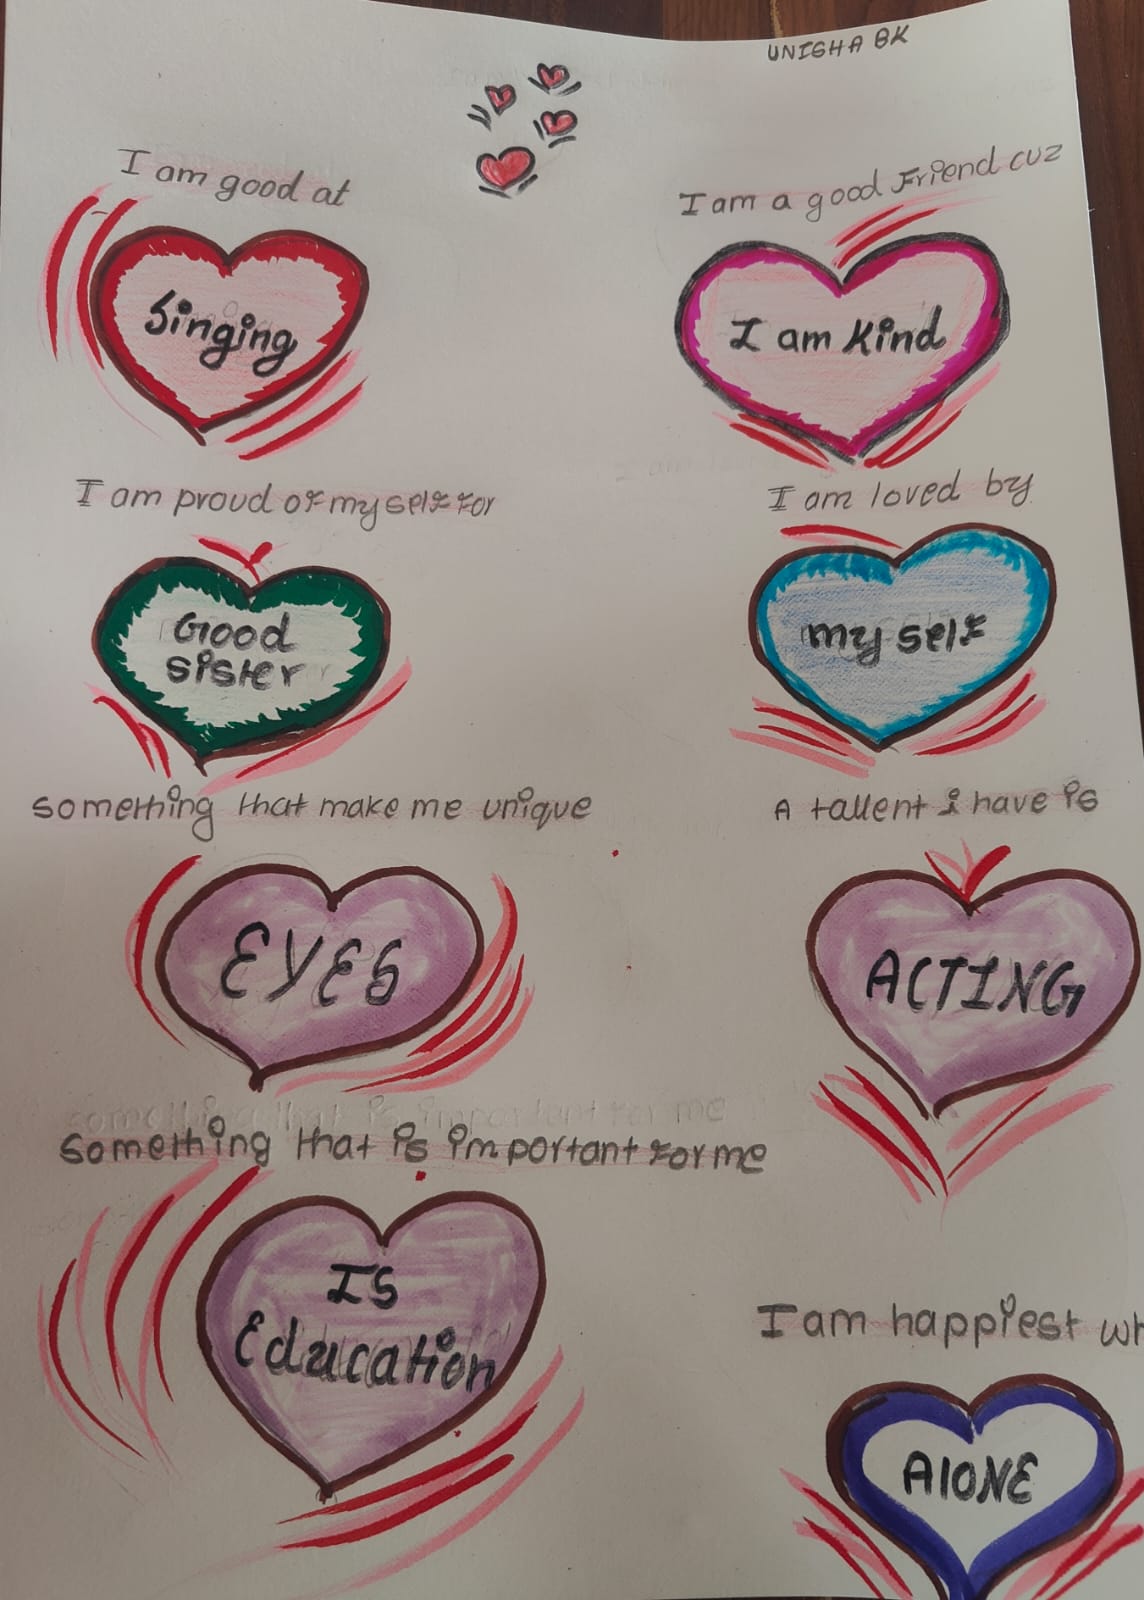 UNISHA BK
I am good at
Singing
I am a good Friend cuz
I am kind
I am proud of my self for
Good
sister
I am loved by
my self
something that make me unique
EYES
A tallent i have is
ACTING
something that is important for me
something that is important for me
IS
Education
I am happiest wh
AlONE